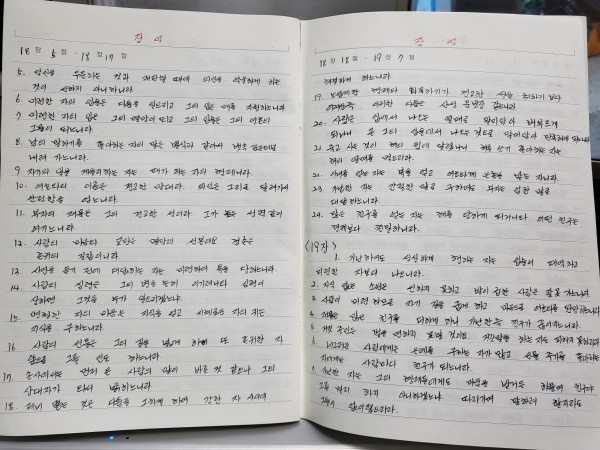 잠언
18장 5절 - 18장 17절
5. 악인을 두둔하는 것과 재판할 때에 의인을 억울하게 하는
것이 선하지 아니하니라
6. 미련한 자의 입술은 다툼을 일으키고 그의 입은 매를 자청하느니라
7. 미련한 자의 입은 그의 멸망이 되고 그의 입술은 그의 영혼의
그물이 되느니라
8. 남의 말하기를 좋아하는 자의 말은 별식과 같아서 뱃속 깊은데로
내려 가느니라
9. 자기의 일을 게을리하는 자는 패가 하는 자의 형제니라
10. 여호와의 이름은 견고한 망대라 의인은 그리로 달려가서
안전함을 얻느니라
11. 부자의 재물은 그의 견고한 성이라 그가 높은 성벽같이
여기느니라
12. 사람의 마음의 교만은 멸망의 선봉이요 겸손은
존귀의 길잡이니라
13. 사연을 듣기 전에 대답하는 자는 미련하여 욕을 당하느니라
14. 사람의 심령은 그의 병을 능히 이기려니와 심령이
상하면 그것을 누가 일으키겠느냐
15. 명철한 자의 마음은 지식을 얻고 지혜로운 자의 귀는
지식을 구하느니라
16. 사람의 선물은 그의 길을 넓게 하며 또 존귀한 자
앞으로 그를 인도 하느니라
17. 송사에서는 먼저 온 사람의 말이 바른 것 같으나 그의
상대자가 와서 밝히느니라
18. 제비 뽑는 것은 다툼을 그치게 하여 강한 자 사이에
잠언
18장 18절 - 19장 7절
해결하게 하느니라
19. 노엽게한 형제와 화목하기가 견고한 성을 취하기 보다
어려운즉 이러한 다툼은 산성 문빗장 같으니라
20. 사람은 입에서 나오는 열매로 말미암아 배부르게
되나니 곧 그의 입술에서 나는 것으로 말미암아 만족하게 되느니라
21. 죽고 사는 것이 혀의 힘에 달렸나니 혀를 쓰기 좋아하는 자는
혀의 열매를 먹으리라
22. 아내를 얻는 자는 복을 얻고 여호와께 은총을 받는 자니라
23. 가난한 자는 간절한 말로 구하여도 부자는 엄한 말로
대답하느니라
24. 많은 친구를 얻는 자는 해를 당하게 되거니와 어떤 친구는
형제보다 친밀하니라
<19장>
1. 가난하여도 성실하게 행하는 자는 입술이 패역하고
미련한 자보다 나으니라
2. 지식 없는 소원은 선하지 못하고 발이 급한 사람은 잘못 가느니라
3. 사람이 미련하므로 자기 길을 굽게 하고 마음으로 여호와를 원망하느니라
4. 재물은 많은 친구를 더하게 하나 가난한즉 친구가 끊어지느니라
5. 거짓 증인은 벌을 면하지 못할 것이요 거짓말을 하는 자도 피하지 못하리라
6. 너그러운 사람에게는 은혜를 구하는 자가 많고 선물 주기를 좋아하는
자에게는 사람마다 친구가 되느니라
7. 가난한 자는 그의 형제들에게도 미움을 받거든 하물며 친구야
그를 멀리 하지 아니하겠느냐 따라가며 말하려 할지라도
그들이 없어졌으리라